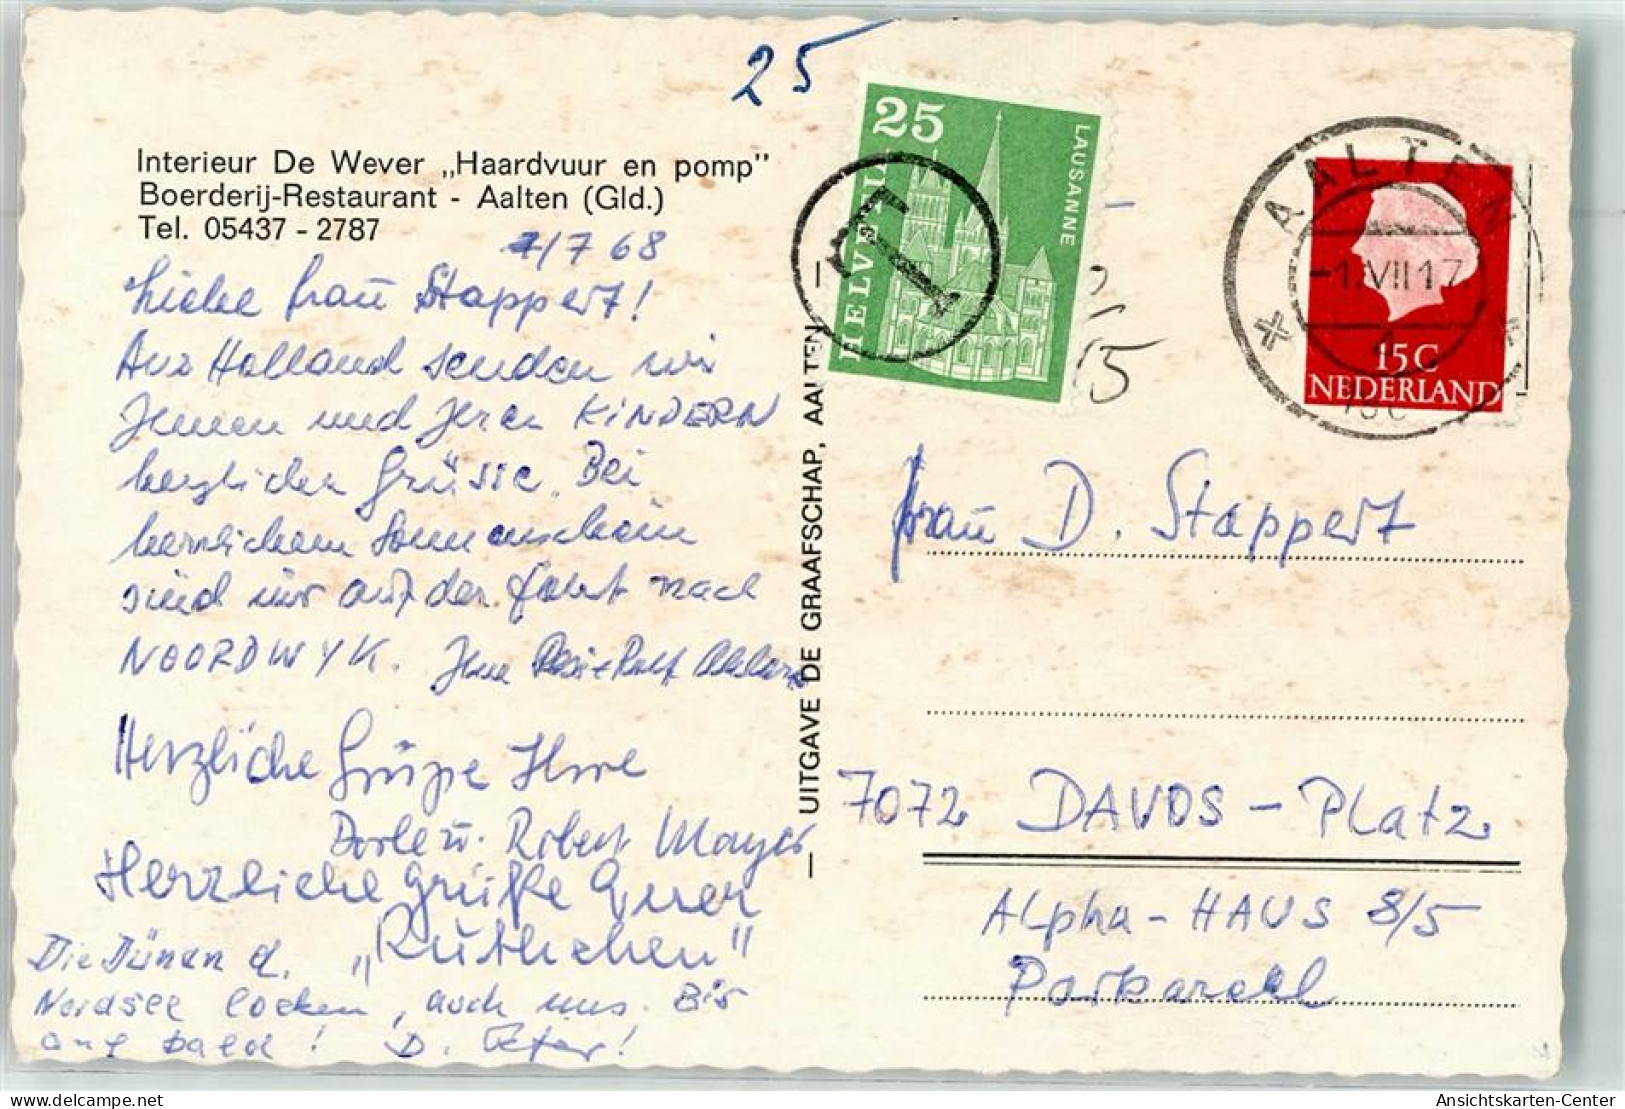 25
Interieur De Wever „Haardvuur en pomp"
Boerderij-Restaurant - Aalten (Gld.)
Tel. 05437 - 2787
1/7 68
Liebe Frau Stappert!
Aus Holland senden wir
Ihnen und Ihren KINDERN
herzlichen Grüsse. Bei
herrlichem Sonnenschein
sind wir auf der Fahrt nach
NOORDWYK. Ihre
Herzliche Grüße Ihre
Dorle u. Robert Mayer
Herzliche Grüße Euer
„Ruthchen"
Die Dünen d.
Nordsee locken, auch uns. Bis
auf bald! D. Peter!
— UITGAVE DE GRAAFSCHAP, AALTEN —
25
HELVETIA
LAUSANNE
T
25
AALTEN
-1.VII.17
15C
NEDERLAND
Frau D. Stappert
7072 DAVOS - Platz
Alpha - HAUS 8/5
Parkareal
delcampe.net
Ansichtskarten-Center